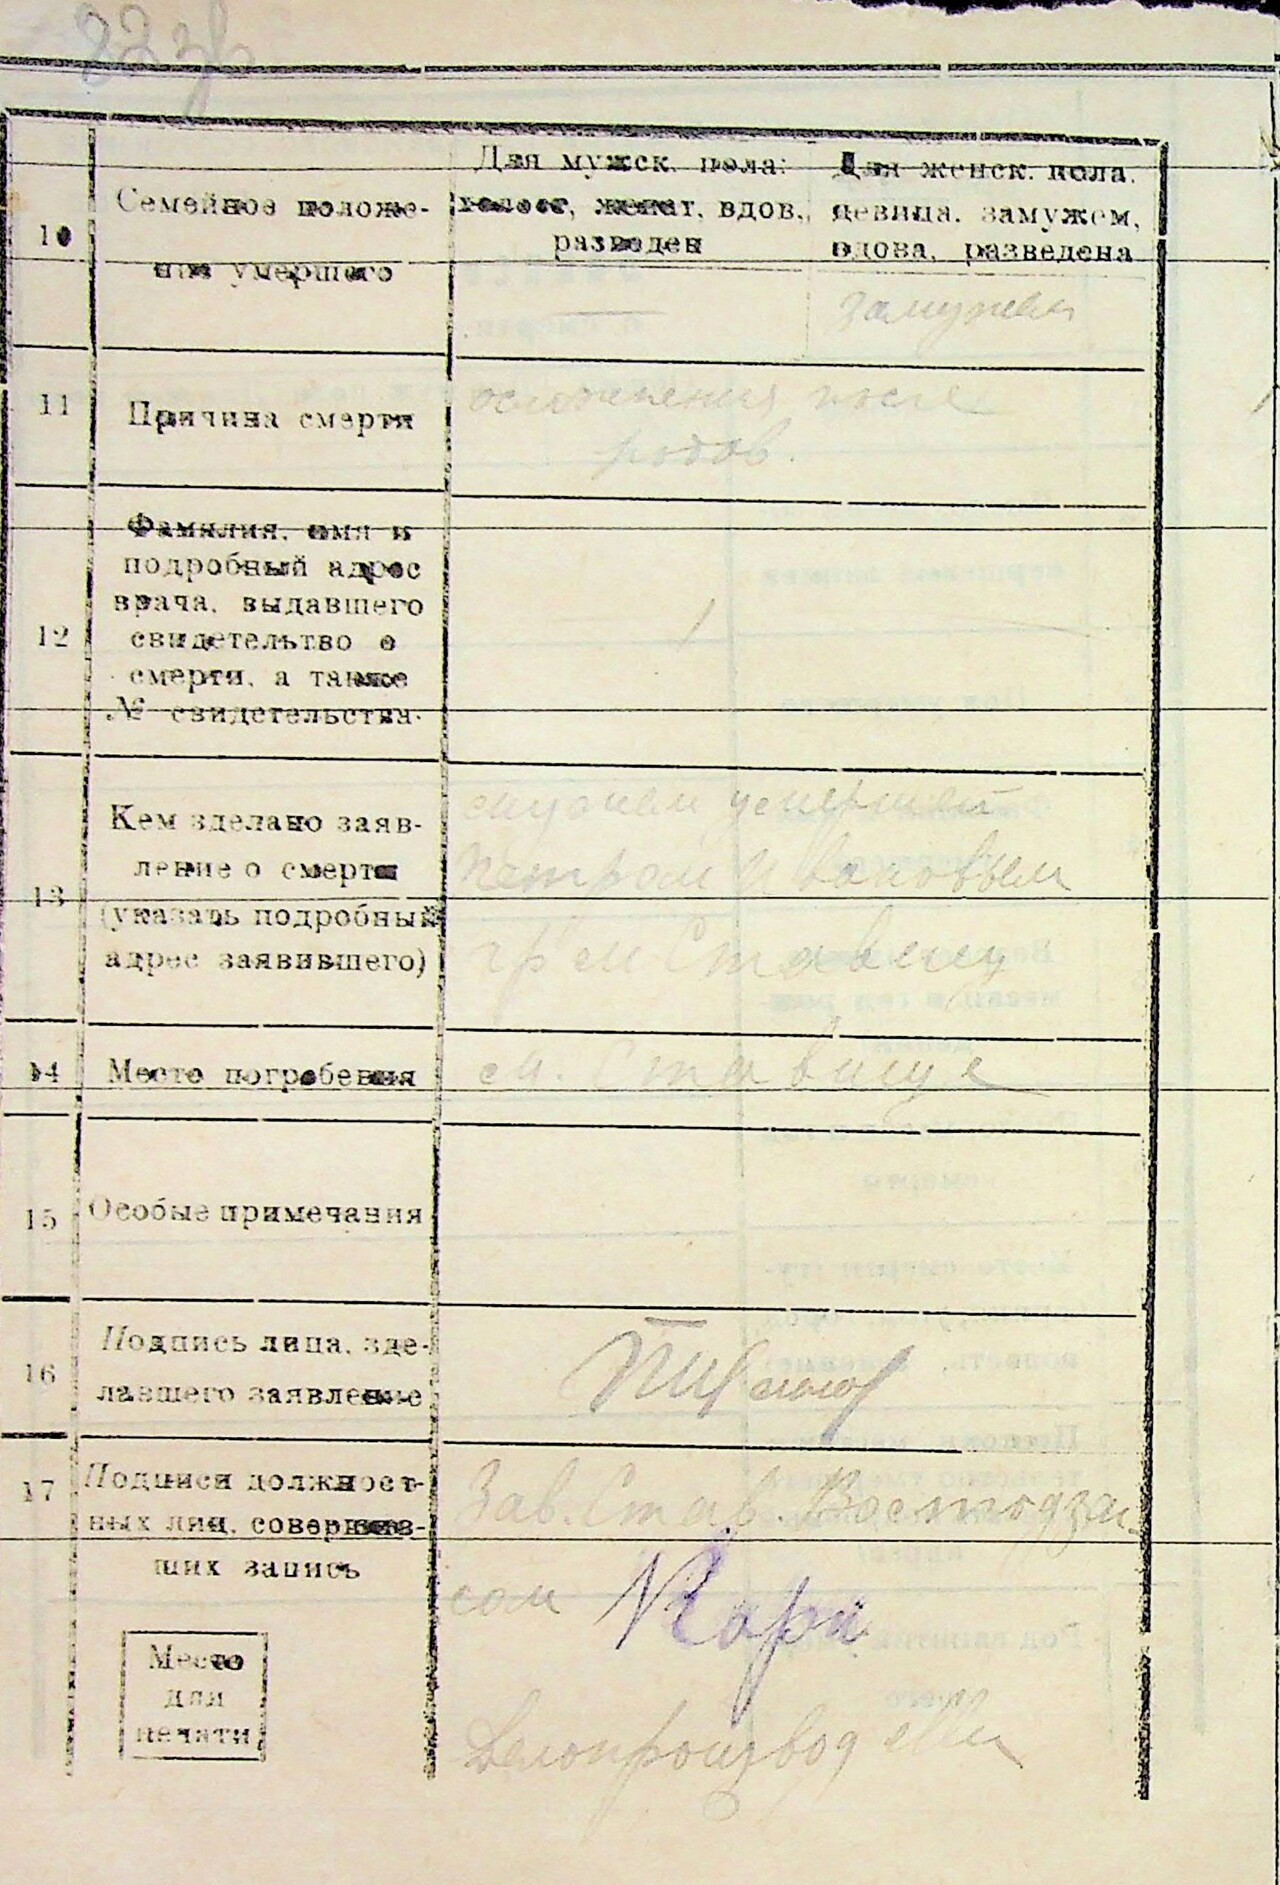 82 зв
10
Семейное положе-
ния умершего
Для мужск. пола:
холост, женат, вдов.,
разведен
Для женск. пола.
девица, замужем,
вдова, разведена
замужем
11
Причина смерти
осложнения после
родов.
12
Фамилия, имя и
подробный адрес
врача, выдавшего
свидетельтво о
смерти, а также
№ свидетельства.
13
Кем зделано заяв-
ление о смерти
(указать подробный
адрес заявившего)
мужем умершей
Петром Ивановым
гр'ем Ставищ
14
Место погребения
м. Ставище
15
Особые примечания
16
Подпись лица, зде-
лавшего заявление
17
Подписи должност-
ных лиц, совершив-
ших запись
Зав. Став.
сом
Делопроизвод
Место
для
печати